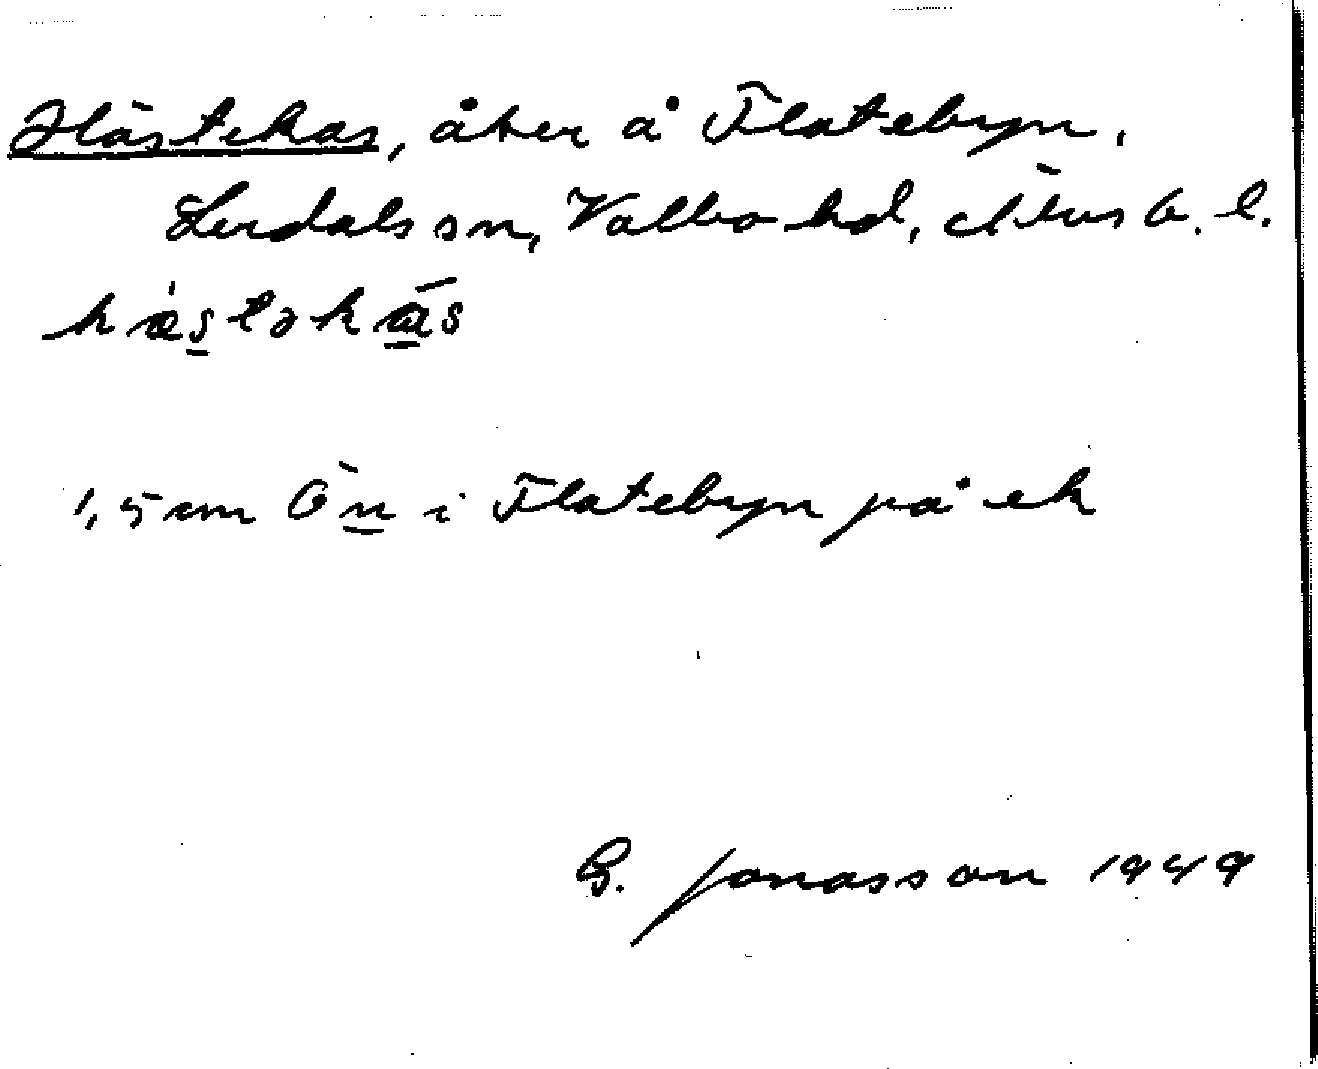 Hästekas, åker å Flatebyn,
Lerdals sn, Valbo hd, Älvsb. l.
hæ̀stəkás
1,5 cm ÖN i Flatebyn på ek
G. Jonasson 1949